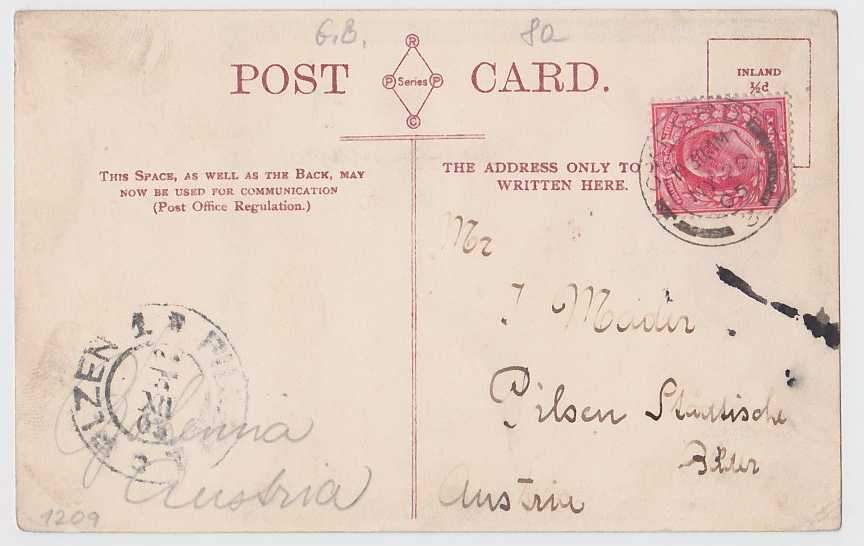 G.B. 80
R
POST P Series P CARD.
C
INLAND
½d
THIS SPACE, AS WELL AS THE BACK, MAY
NOW BE USED FOR COMMUNICATION
(Post Office Regulation.)
THE ADDRESS ONLY TO
WRITTEN HERE.
Mr
J Mader
Pilsen Stadtische
Austria
PLZEN
Bohemia
Austria
1209